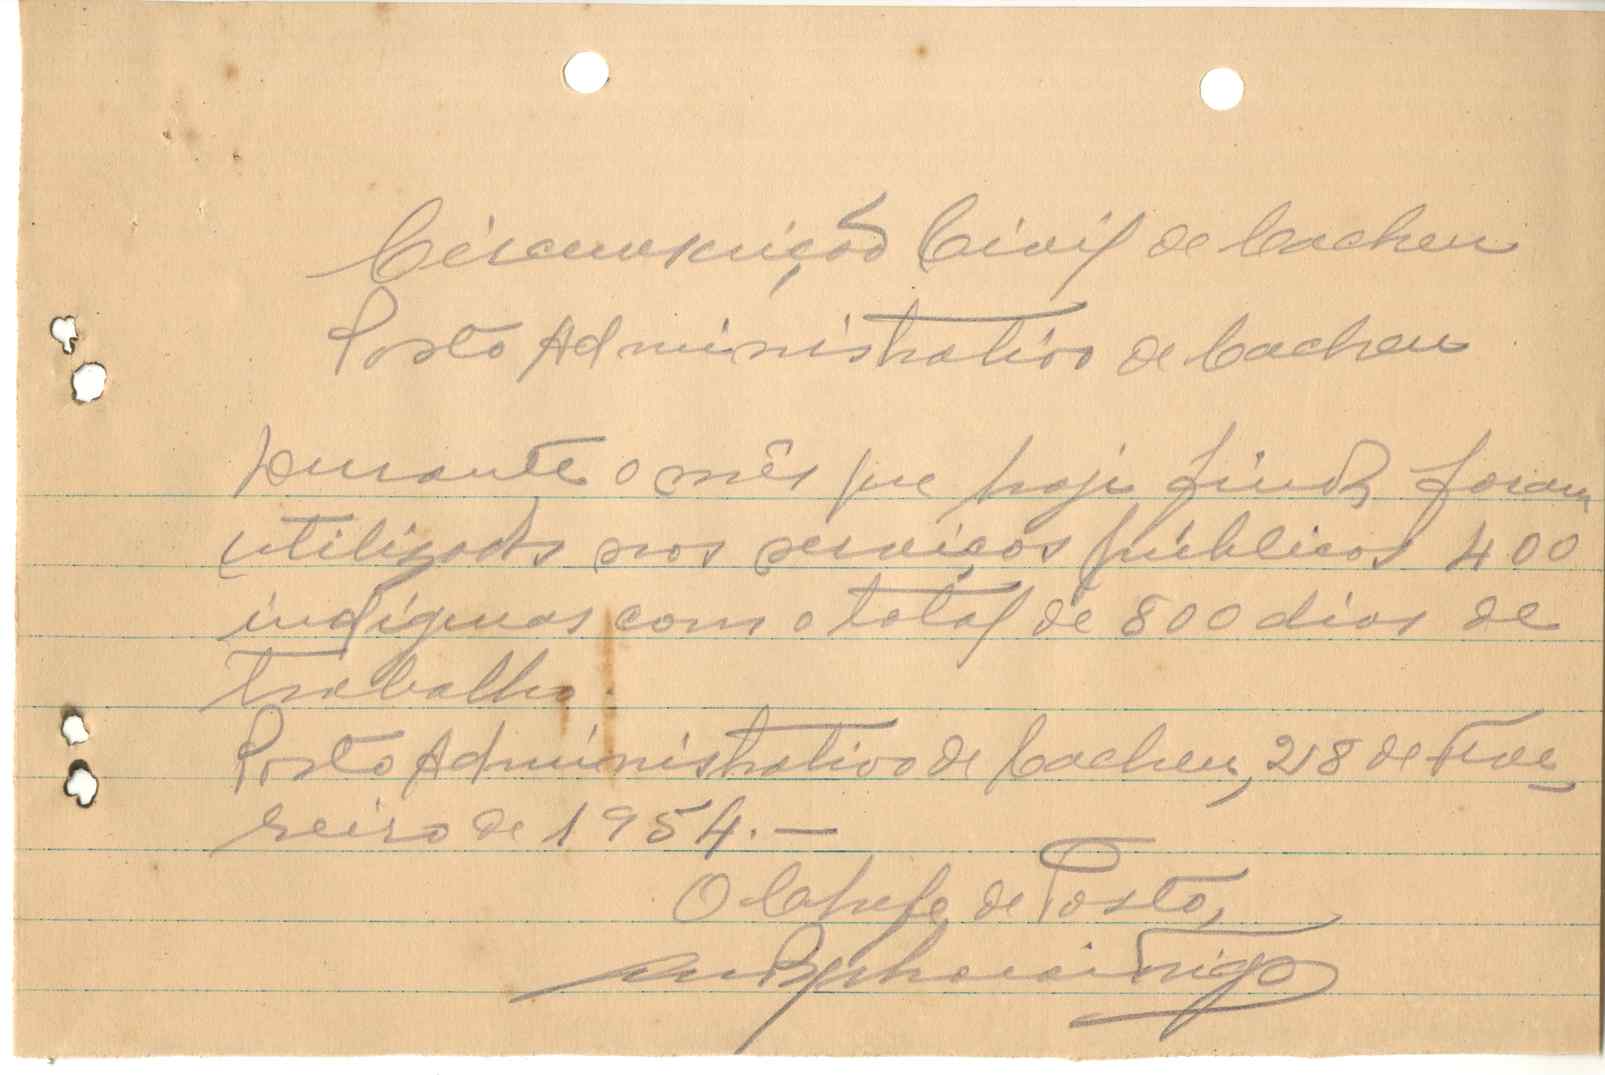 Circunscrição Civil de Cacheu
Posto Administrativo de Cacheu
Durante o mês que hoje finda, foram
utilizados nos serviços públicos 400
indígenas com o total de 800 dias de
trabalho.
Posto Administrativo de Cacheu, 28 de Feve
reiro de 1954.—
O Chefe de Posto,